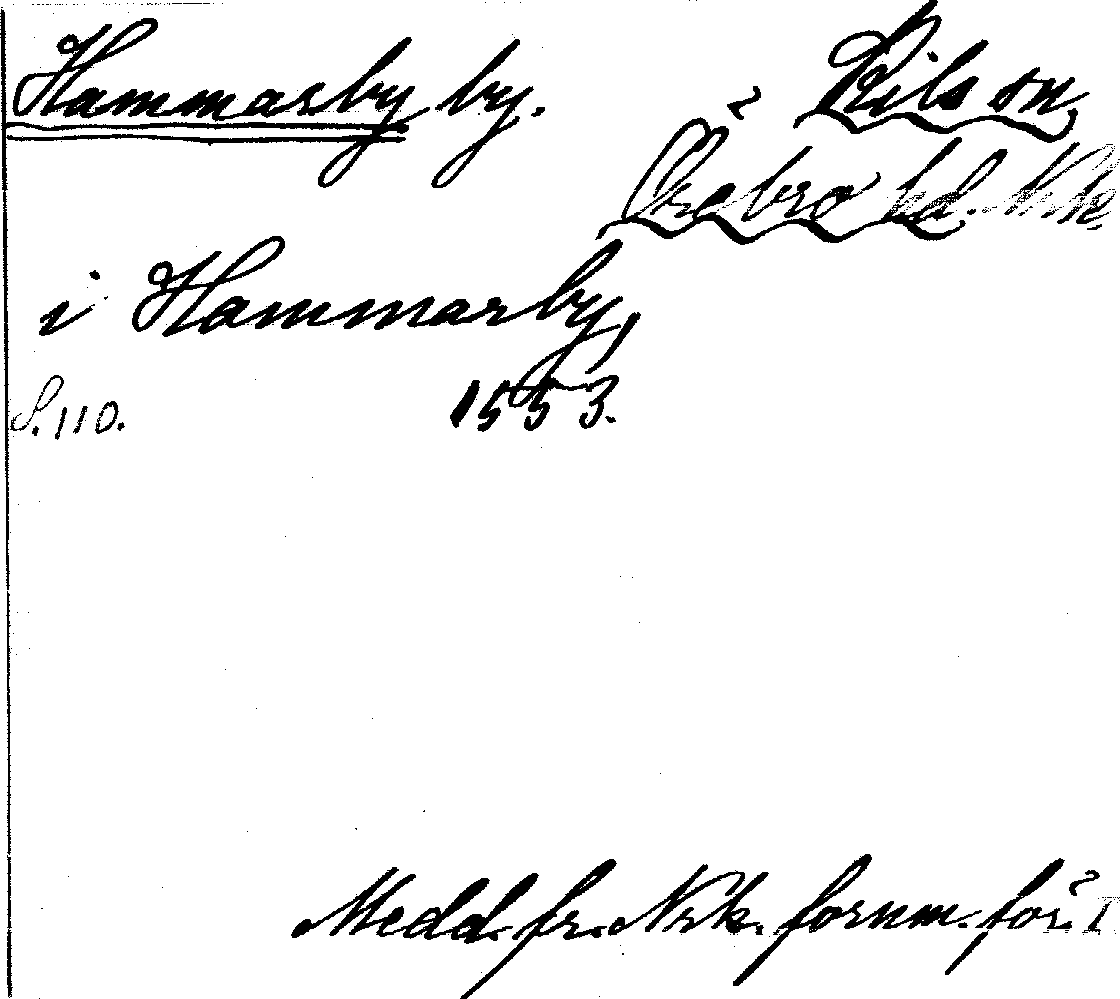 Hammarby by. Kils sn,
Örebro hd. Nrke.
i Hammarby,
S. 110. 1553.
Medd. fr. Nrk. fornm. för. I